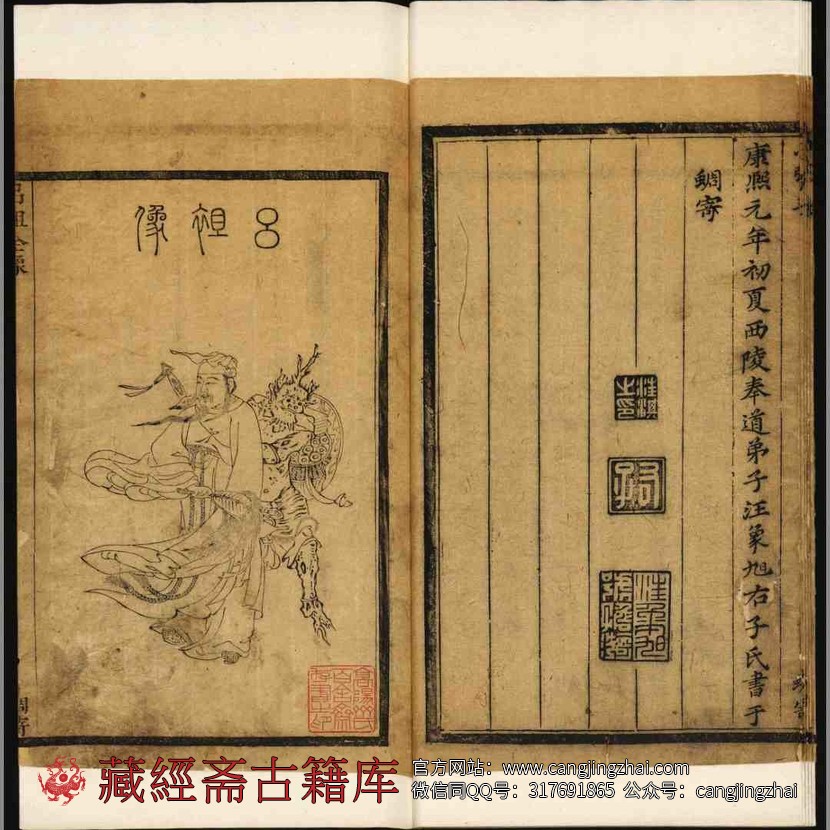 康熙元年初夏西陵奉道弟子汪象旭右子氏書于
蜩寄
汪淇之印
呂祖像
呂祖全像
蜩寄
藏經斋古籍库
官方网站：www.cangjingzhai.com
微信同QQ号：317691865 公众号：cangjingzhai